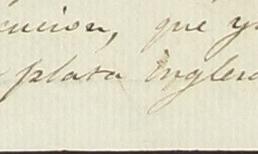 cucion, que y
plata inglesa